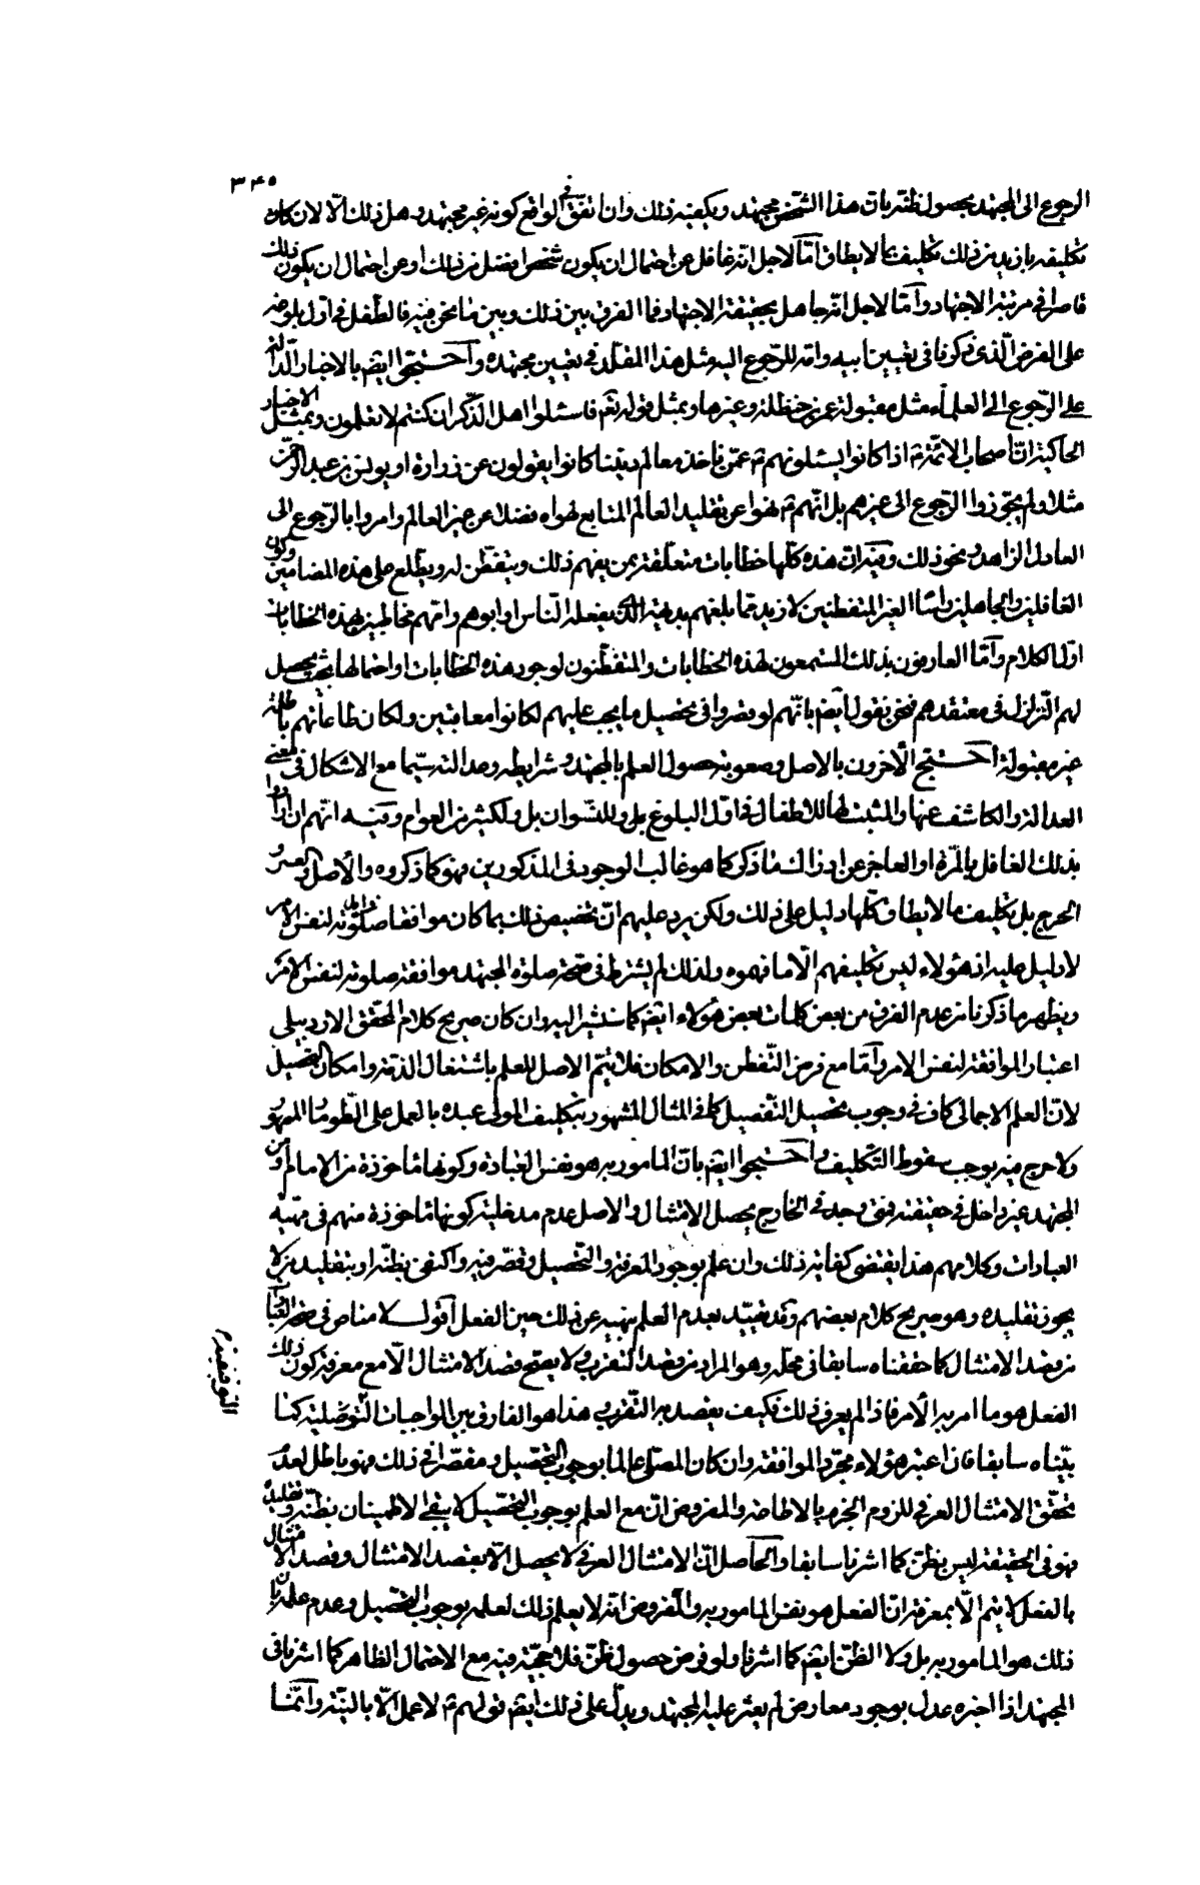 ٣٤٥
الرجوع الى المجتهد بحصول ظنه بان هذا الشخص مجتهد ويكفيه ذلك وان اتفق فى الواقع كونه غير مجتهد وهل ذلك الّا لان كان
تكليفه بازيد من ذلك تكليف بما لا يطاق امّا لاجل انه غافل عن احتمال ان يكون شخص افضل من ذلك او عن احتمال ان يكون ذلك
قاصرا فى مرتبة الاجتهاد وامّا لاجل انه جاهل بحقيقة الاجتهاد فما الفرق بين ذلك وبين ما نحن فيه فالطفل فى اول بلوغه
على الفرض الّذى ذكرنا فى تعيين ابيه وامه للرجوع اليه مثل هذا المقلد فى تعيين مجتهده واحتجّوا ايضم بالاخبار الدّالة
على الرّجوع الى العلماء مثل مقبولة عمر بن حنظلة وغيرها وبمثل قوله تعم فاسئلوا اهل الذّكر ان كنتم لا تعلمون وبمثل الاخبار
الحاكية انّ اصحاب الائمّة م اذا كانوا يسئلونهم م عمّن ناخذ معالم ديننا كانوا يقولون عن زرارة او يونس بن عبد الرحمن
مثلا ولم يجوّزوا الرّجوع الى غيرهم بل انّهم م نهوا عن تقليد العالم المتابع لهواه فضلا عن غير العالم وامروا بالرّجوع الى
العادل الزاهد ونحو ذلك وفيه ان هذه كلّها خطابات متعلقة بمن يفهم ذلك ويتفطّن له ويطّلع على هذه المضامين وكون
الغافلين والجاهلين راسا الغير المتفطنين لازيد مما بلغهم بديهة الذى يفعله الناس او ابوهم وامّهم مخاطبين بهذه الخطابات
اول الكلام وامّا العارفون بذلك المستمعون لهذه الخطابات والمتفطّنون لوجود هذه الخطابات او احتمالها بحيث يحصل
لهم التّزلزل فى معتقدهم فنحن نقول ايضم بانّهم لو قصروا فى تحصيل ما يجب عليهم لكانوا معاقبين ولكان طاعاتهم باطلة
غير مقبولة احتج الآخرون بالاصل وصعوبة حصول العلم بالمجتهد وشرايطه وعدالته سيّما مع الاشكال فى معنى
العدالة والكاشف عنها والمثبت لها للاطفال فى اول البلوغ بل وللنّسوان بل ولكثير من العوام وفيه انهم ان ارادوا
بذلك الغافل بالمرّة او العاجز عن ادراك ما ذكر كما هو غالب الوجود فى المذكورين فهو كما ذكروه والاصل والعسر و
الحرج بل تكليف ما لا يطاق كلّها دليل على ذلك ولكن يرد عليهم ان تخصيص ذلك بما كان موافقا صلوته لنفس الامر
لا دليل عليه اذ هؤلاء ليس تكليفهم الّا ما فهموه ولذلك لم يشترط فى صحة صلوة المجتهد موافقة صلوته لنفس الامر
ويظهر ما ذكرنا من عدم الفرق من بعض كلمات بعض هؤلاء ايضم كما سنشير اليه وان كان صريح كلام المحقق الاردبيلى
اعتبار الموافقة لنفس الامر وامّا مع فرض التّفطّن والامكان فلا يتم الاصل للعلم باشتغال الذمّة وامكان التحصيل
لان العلم الاجمالى كاف فى وجوب تحصيل التفصيل كما فى المثال المشهور بتكليف المولى عبده بالعمل على الطّومار الممهور
ولا حرج فيه يوجب سقوط التّكليف واحتجوا ايضم بان المامور به هو نفس العبادة وكونها ماخوذة من الامام او من
المجتهد غير داخل فى حقيقته فمتى وجد فى الخارج يحصل الامتثال والاصل عدم مدخلية كونها ماخوذة منهم فى مهيّة
العبادات وكلامهم هذا يقتضى كفاية ذلك وان علم بوجوب المعرفة والتّحصيل وقصّر فيه واكتفى بظنّه او بتقليد من لا
يجوز تقليده وهو صريح كلام بعضهم وقد يقيّد بعدم العلم بنهيه عن ذلك حين الفعل اقول لا مناص فى صحة العبادات
من قصد الامتثال كما حققناه سابقا فى محلّه وهو المراد من قصد التقرّب ولا يصحّ قصد الامتثال الّا مع معرفة كون ذلك
الفعل هو ما امر به الآمر فاذا لم يعرف ذلك فكيف يقصد به التقرّب هذا هو الفارق بين الواجبات التّوصّلية كما
بيّناه سابقا فاذا اعتبر هؤلاء مجرّد الموافقة وان كان المصلى عالما بوجوب التّحصيل ومقصّرا فى ذلك فهو باطل لعدم
تحقّق الامتثال العرفى للزوم الجزم بالاطاعة والمفروض ان مع العلم بوجوب التّحصيل لا يبقى الاطمينان بظنّه وتقليده
فهو فى الحقيقة ليس بظن كما اشرنا سابقا والحاصل انّ الامتثال العرفى لا يحصل الّا بقصد الامتثال وقصد الامتثال
بالفعل لا يتم الّا بمعرفة ان الفعل هو نفس المامور به والمفروض انه لا يعلم ذلك لعلمه بوجوب التّحصيل وعدم علمه بان
ذلك هو المامور به بل ولا الظنّ ايضم كما اشرنا ولو فرض حصول ظنّ فلا حجيّة فيه مع الاحتمال الظاهر كما اشرنا فى
المجتهد اذا اخبره عدل بوجود معارض لم يعثر عليه المجتهد ويدلّ على ذلك ايضم قولهم م لا عمل الّا بالنيّة وانّما